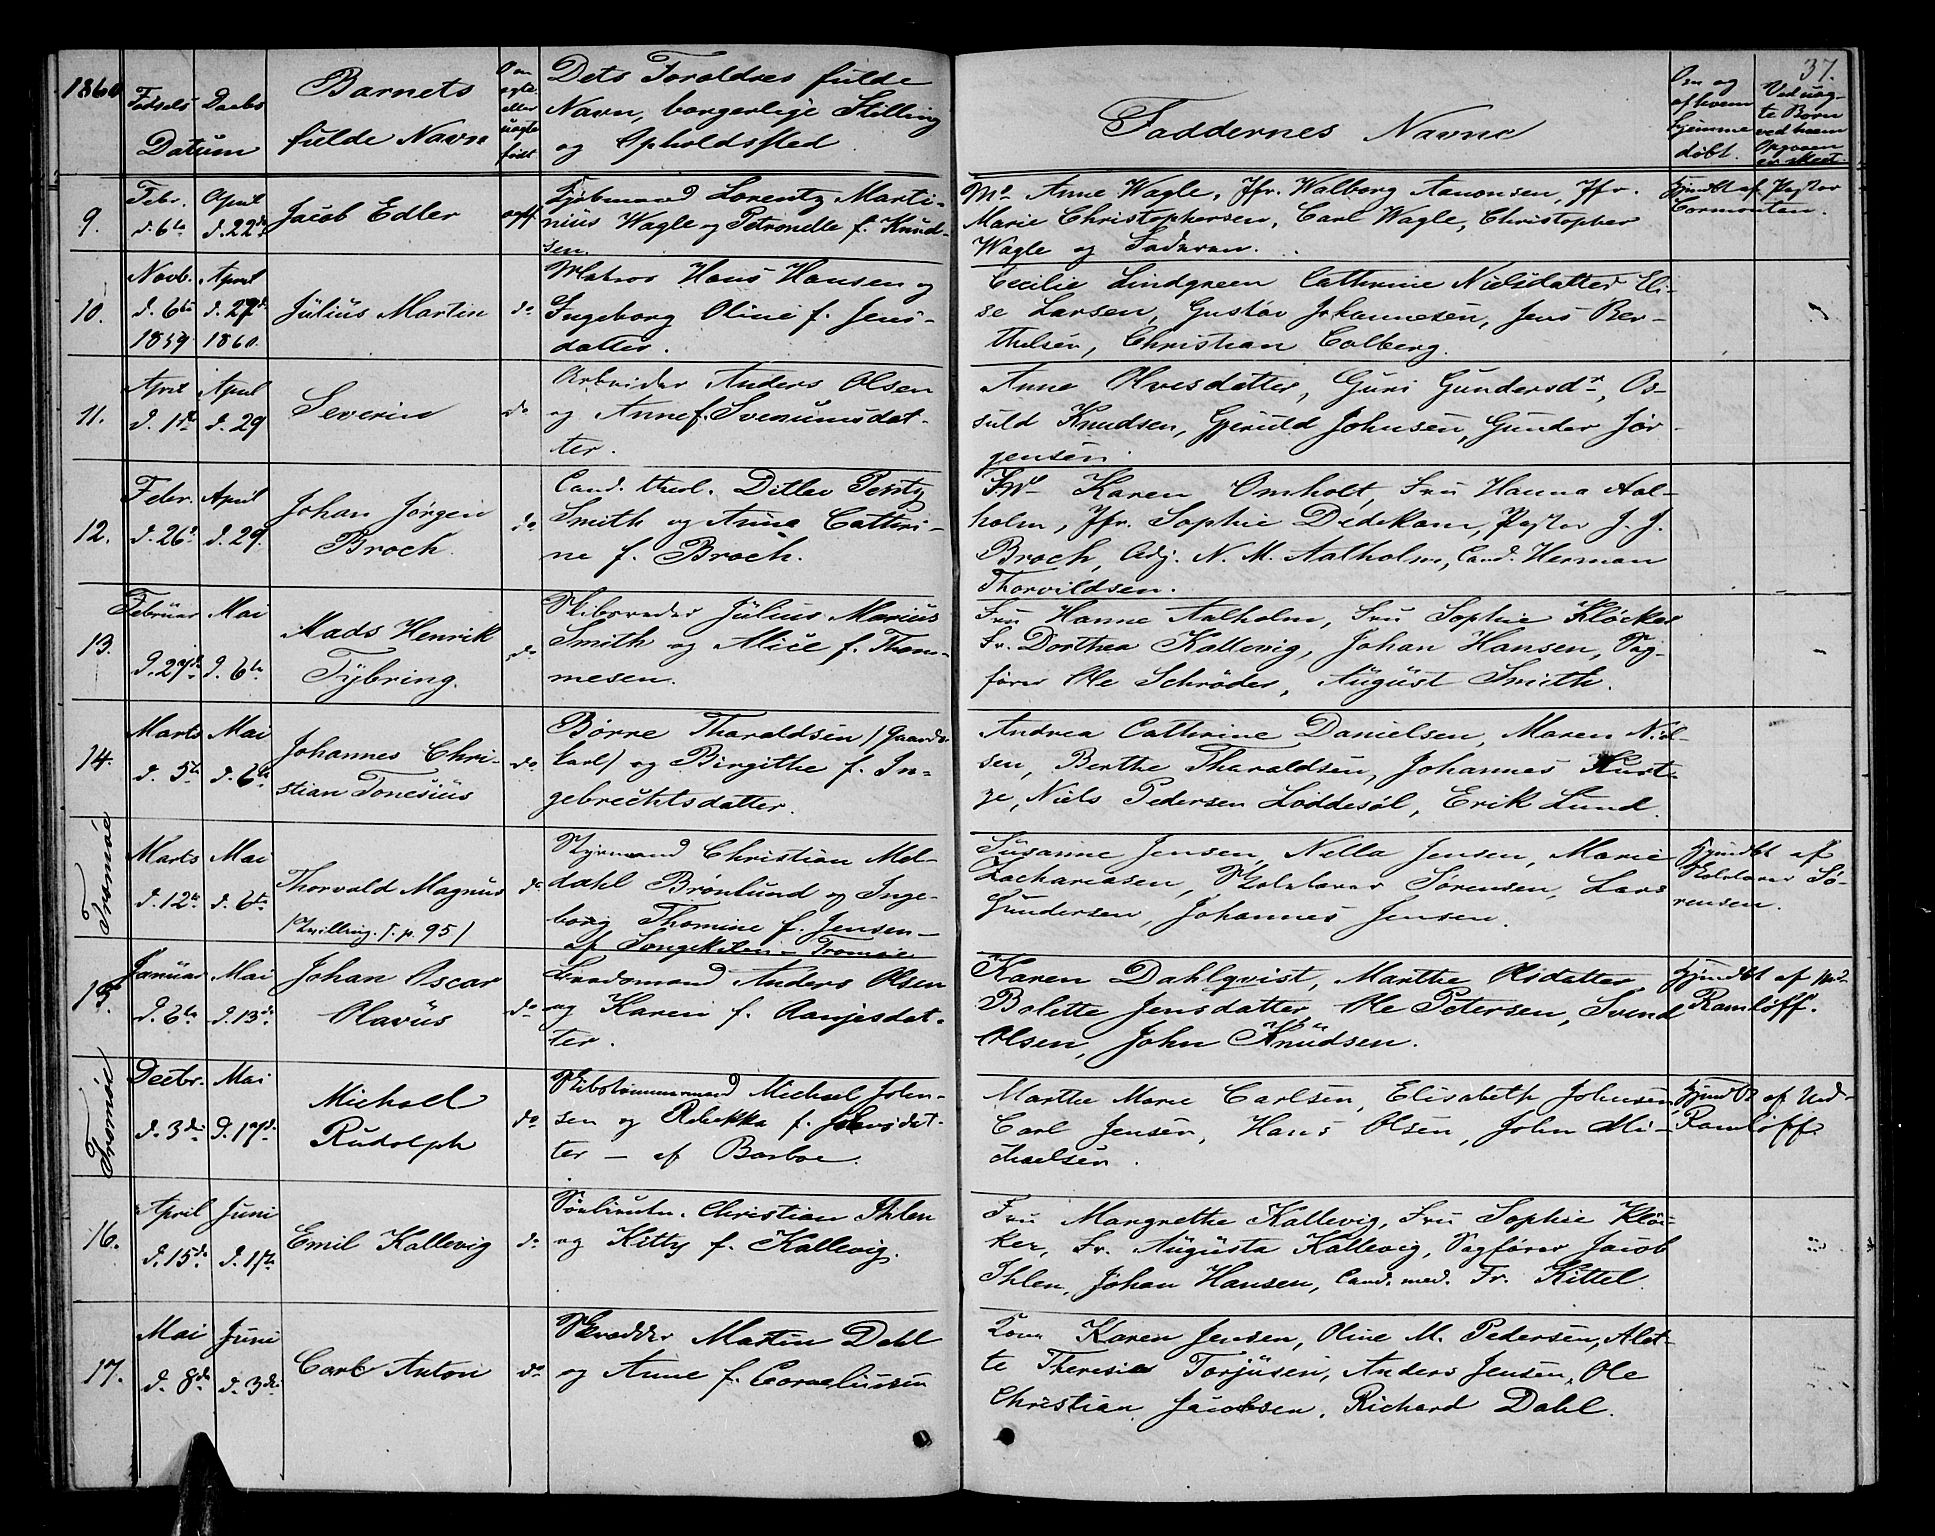 1860
Fødsels Daabs
Datum
Barnets
fulde Navn
Om
ægte
eller
uægte
født
Dets Foraldres fulde
Navn, borgerlige Stilling
og Opholdssted
Faddernes Navne
37.
Om og
af hvem
hjemme
døbt.
Ved uæg-
te Børn
ved hvem
Opgaven
er skeet
9.
Febr.
d. 6te
April
d. 22de
Jacob Edler
ægte
Lorentz Marti-
nius Wagle og Petronelle f. Knud-
sen.
Md. Anne Wagle, Jfr. Walborg Aanonsen, Jfr.
Marie Christophersen, Carl Wagle, Christopher
Wagle og Faderen.
Hjmdbt af Pastor
Cormonten.
10.
Novb.
d. 6te
1859
April
d. 27de
1860.
Julius Martin
do
Matros Hans Hansen og
Ingeborg Oline f. Jens-
datter.
Cecilie Lindgreen Cathrine Nielsdatter Eli-
se Larsen, Gustav Johannesen, Jens Ber-
thelsen, Christian Colberg.
11.
April
d. 1ste
April
d. 29
Severin
do
Arbeider Anders Olsen
og Anne f. Svenumsdat-
ter.
Anne Olvesdatter, Guri Gundersdr, Os-
suld Knudsen, Gjeruld Johnsen, Gunder Jør-
gensen.
12.
Febr.
d. 26de
April
d. 29.
Johan Jørgen
Broch.
do
Cand. theol. Ditlev Pentz
Smith og Anna Cathri-
ne f. Broch.
Md Karen Omholt, Fru Hanna Aal-
holm, Jfr. Sophie Dedekam, Pastor J. J.
Broch, Adj. N. M. Aalholm, Cand. Herman
Thorvildsen.
13.
Februar
d. 27de
Mai
d. 6te
Mads Henrik
Tybring.
do
Skibsreder Julius Marius
Smith og Alice f. Thom-
mesen.
Fru Hanne Aalholm, Fru Sophie Kløcker
Fr. Dorthea Kallevig, Johan Hansen, Sag-
fører Ole Schrøder, August Smith.
14.
Marts
d. 5te
Mai
d. 6te
Johannes Chri-
stian Tonesius
do
Børre Tharaldsen / Gaards-
karl / og Birgithe f. In-
gebrechtsdatter.
Andrea Cathrine Danielsen, Maren Niel-
sen, Berthe Tharaldsen, Johannes Kurt-
ze, Niels Pedersen Løddesøl, Erik Lund.
Tromøe
Marts
d. 12te
Mai
d. 6te
Thorvald Magnus
/ Tvilling. f. p. 95 /
do
Styrmand Christian Mel-
dahl Brønlund og Inge-
borg Thomine f. Jensen -
af Songekilen - Tromøe
Susanne Jensen, Nella Jensen, Marie
Zachariasen, Skolelærer Sørensen, Lars
Gundersen, Johannes Jensen.
Hjmdbt af
Skolelærer Sø-
rensen.
15.
Januar
d. 6te
Mai
d. 13de
Johan Oscar
Olavus
do
Anders Olsen
og Karen f. Aanjesdat-
ter.
Karen Dahlqvist, Marthe Olsdatter,
Bolette Jensdatter, Ole Petersen, Svend
Olsen, John Knudsen.
Hjmdbt af Md
Ramløff.
Tromøe
Decbr.
d. 3die
Mai
d. 17de
Michael
Rudolph
do
Skibstømmermand Michael John-
sen og Rebekka f. Johnsdat-
ter - af Barboe.
Marthe Marie Carlsen, Elisabeth Johnsen
Carl Jensen, Hans Olsen, John Mi-
chaelsen.
Hjmdbt af Md
Ramløff.
16.
April
d. 15de
Juni
d. 1ste
Emil Kallevig
do
Søelieutn. Christian Ihlen
og Kitty f. Kallevig.
Fru Margrethe Kallevig, Fru Sophie Kløc-
ker, Fr. Augusta Kallevig, Sagfører Jacob
Ihlen, Johan Hansen, Cand. med. Fr. Kittel.
17.
Mai
d. 8de
Juni
d. 3die
Carl Anton
do
Skrædder Martin Dahl
og Anne f. Corneliussen
Kone Karen Jensen, Oline M. Pedersen, Alet-
te Theresia Torjusen, Anders Jensen, Ole
Christian Jacobsen, Richard Dahl.